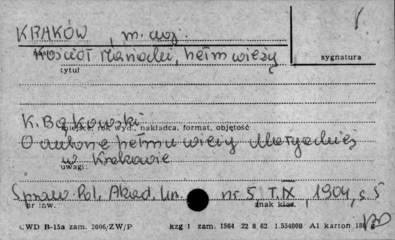 KRAKÓW, m. woj.
Kościół Mariacki, hełm wieży
sygnatura
tytuł
K. Bąkowski
miejsce, rok wyd., nakładca, format, objętość
O autorze hełmu wieży Maryackiej
w Krakowie
uwagi:
Spraw. Pol. Akad. Um. nr 5, T. IX, 1904, s. 5
nr inw. znak klas.
CWD B-15a zam. 2006/ZW/P kzg 1 zam. 1564 22 8 62 1.554000 A1 karton 180 g